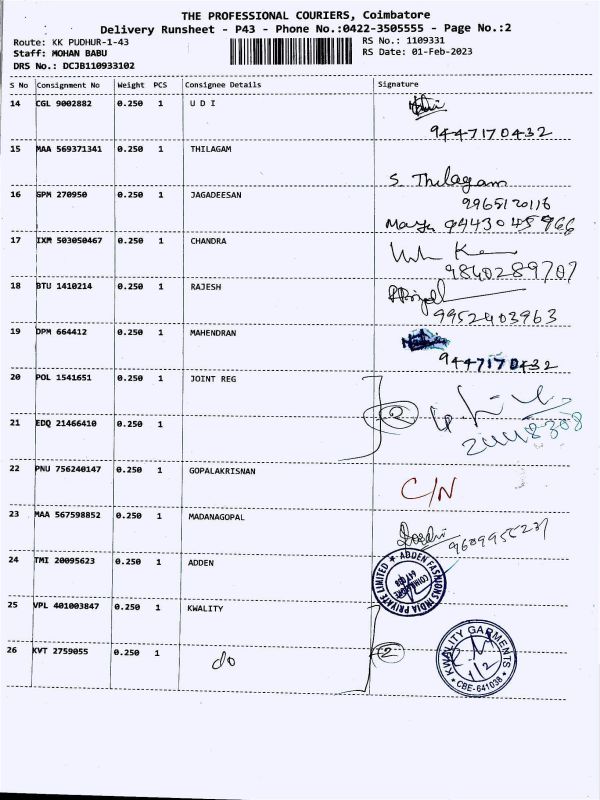 THE PROFESSIONAL COURIERS, Coimbatore
Delivery Runsheet - P43 - Phone No.:0422-3505555 - Page No.:2
Route: KK PUDHUR-1-43
RS No.: 1109331
Staff: MOHAN BABU
RS Date: 01-Feb-2023
DRS No.: DCJB110933102
S No Consignment No Weight PCS Consignee Details Signature
14 CGL 9002882 0.250 1 U D I
9447170432
15 MAA 569371341 0.250 1 THILAGAM
S. Thilagam
16 GPM 270950 0.250 1 JAGADEESAN
9965120116
9443045966
17 IXM 503050467 0.250 1 CHANDRA
9840289707
18 BTU 1410214 0.250 1 RAJESH
9952403963
19 DPM 664412 0.250 1 MAHENDRAN
9447170432
20 POL 1541651 0.250 1 JOINT REG
2
21 EDQ 21466410 0.250 1
22 PNU 756240147 0.250 1 GOPALAKRISNAN
C/N
23 MAA 567598852 0.250 1 MADANAGOPAL
24 TMI 20095623 0.250 1 ADDEN
ADDEN FASHIONS INDIA PRIVATE LIMITED
COIMBATORE
25 VPL 401003847 0.250 1 KWALITY
26 KVT 2759055 0.250 1 do
2
KWALITY GARMENTS
1/2
CBE-641038